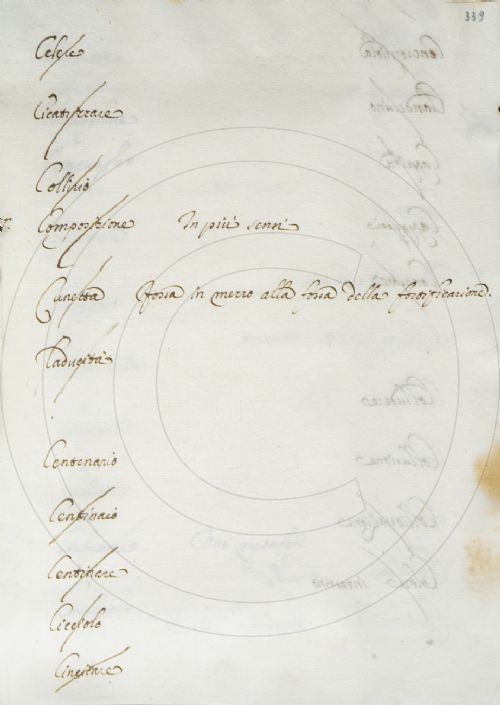 339
Celere
Cicatrizzare
Collirio
Composizione In più sensi
Cunetta fossa in mezzo alla fossa della fortificazione.
Caducità
Centenario
Centinaio
Centinare
Cicciolo